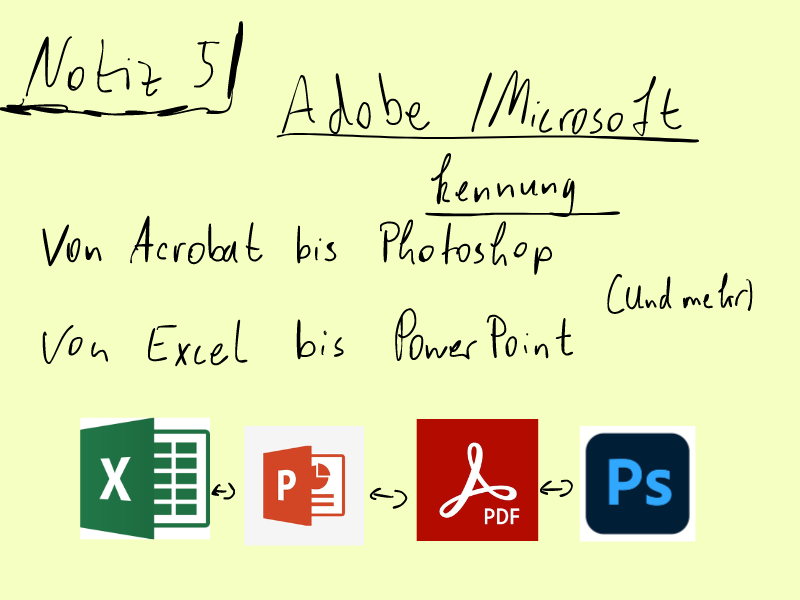 Notiz 5
Adobe / Microsoft
kennung
Von Acrobat bis Photoshop
(Und mehr)
Von Excel bis PowerPoint
X
P
PDF
Ps